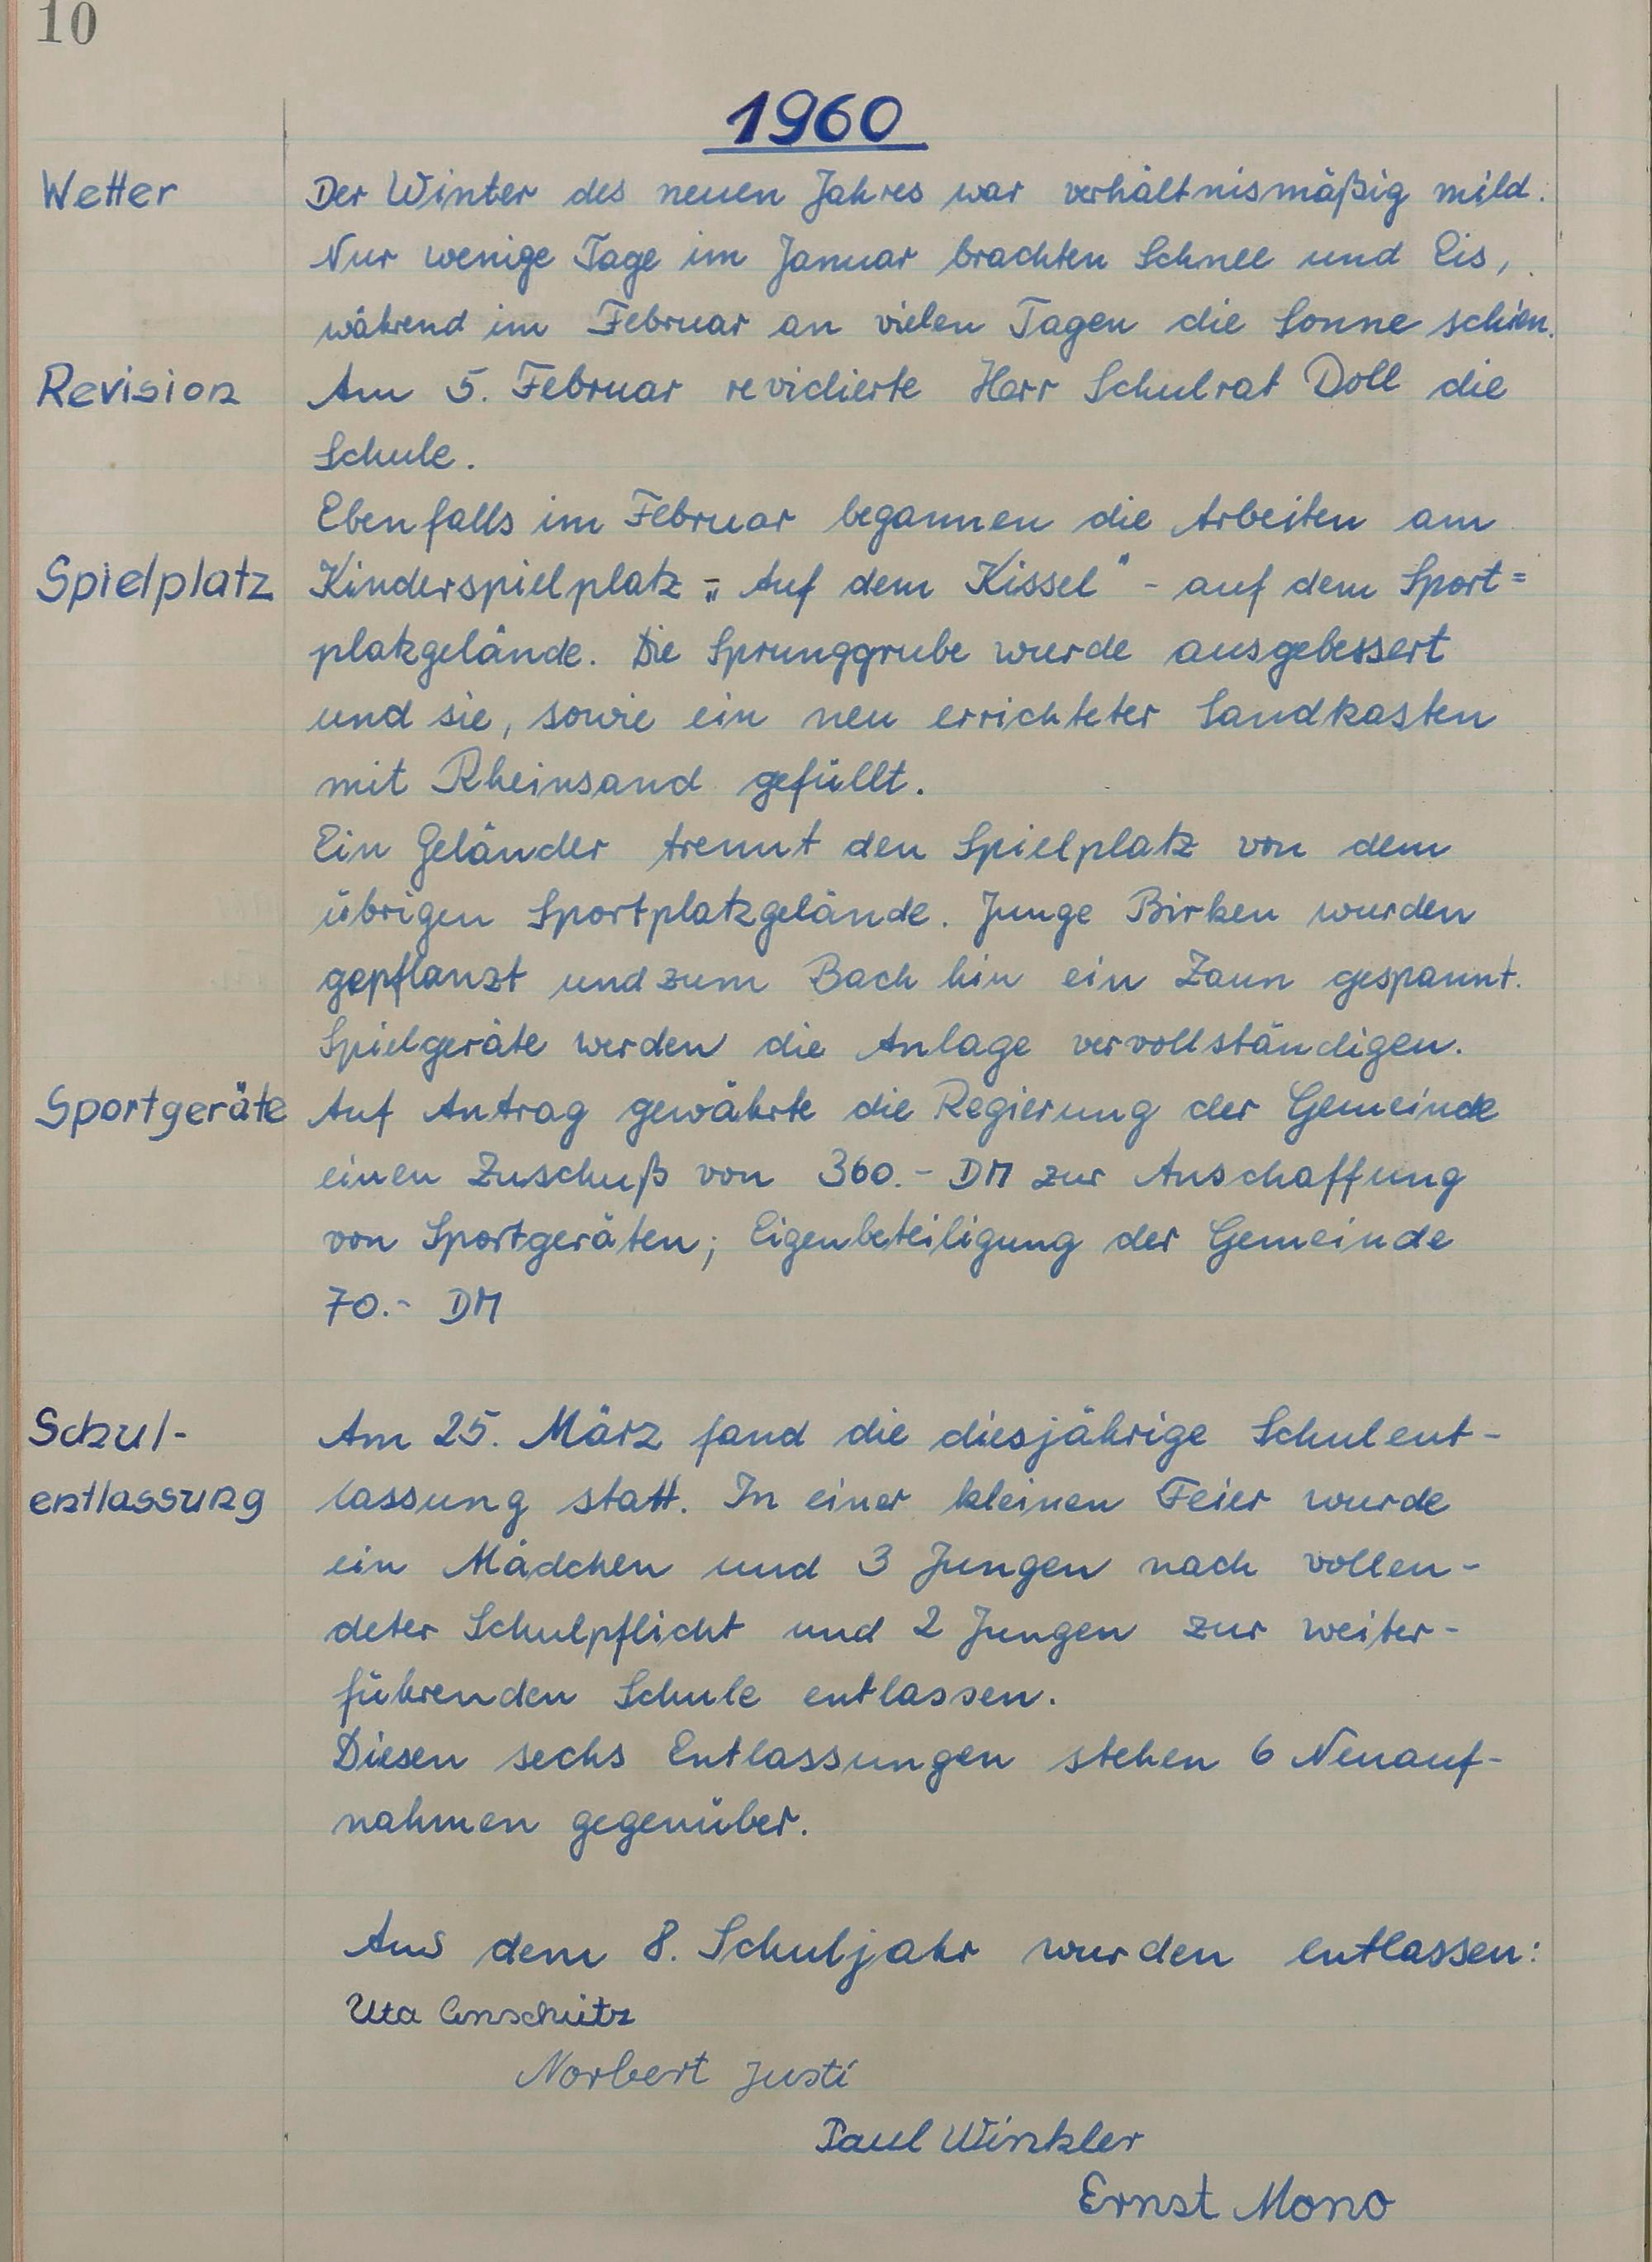 10
1960
Wetter Der Winter des neuen Jahres war verhältnismäßig mild.
Nur wenige Tage im Januar brachten Schnee und Eis,
während im Februar an vielen Tagen die Sonne schien.
Revision Am 5. Februar revidierte Herr Schulrat Doll die
Schule.
Ebenfalls im Februar begannen die Arbeiten am
Spielplatz Kinderspielplatz - „Auf dem Kissel" - auf dem Sport=
platzgelände. Die Sprunggrube wurde ausgebessert
und sie, sowie ein neu errichteter Sandkasten
mit Rheinsand gefüllt.
Ein Geländer trennt den Spielplatz von dem
übrigen Sportplatzgelände. Junge Birken wurden
gepflanzt und zum Bach hin ein Zaun gespannt.
Spielgeräte werden die Anlage vervollständigen.
Sportgeräte Auf Antrag gewährte die Regierung der Gemeinde
einen Zuschuß von 360.- DM zur Anschaffung
von Sportgeräten; Eigenbeteiligung der Gemeinde
70.- DM
Schul- Am 25. März fand die diesjährige Schulent-
entlassung lassung statt. In einer kleinen Feier wurde
ein Mädchen und 3 Jungen nach vollen-
deter Schulpflicht und 2 Jungen zur weiter-
führenden Schule entlassen.
Diesen sechs Entlassungen stehen 6 Neuauf-
nahmen gegenüber.
Aus dem 8. Schuljahr wurden entlassen:
Uta Anschütz
Norbert Justi
Paul Winkler
Ernst Mono